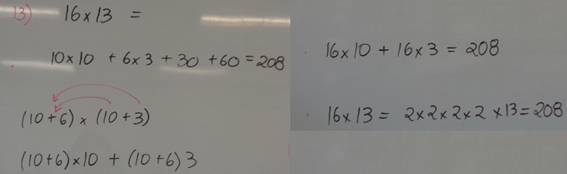 13) 16x13 =
10x10 + 6x3 + 30 + 60 = 208
(10+6) x (10+3)
(10+6)x10 + (10+6)3
16x10 + 16x3 = 208
16x13 = 2x2x2x2x13=208